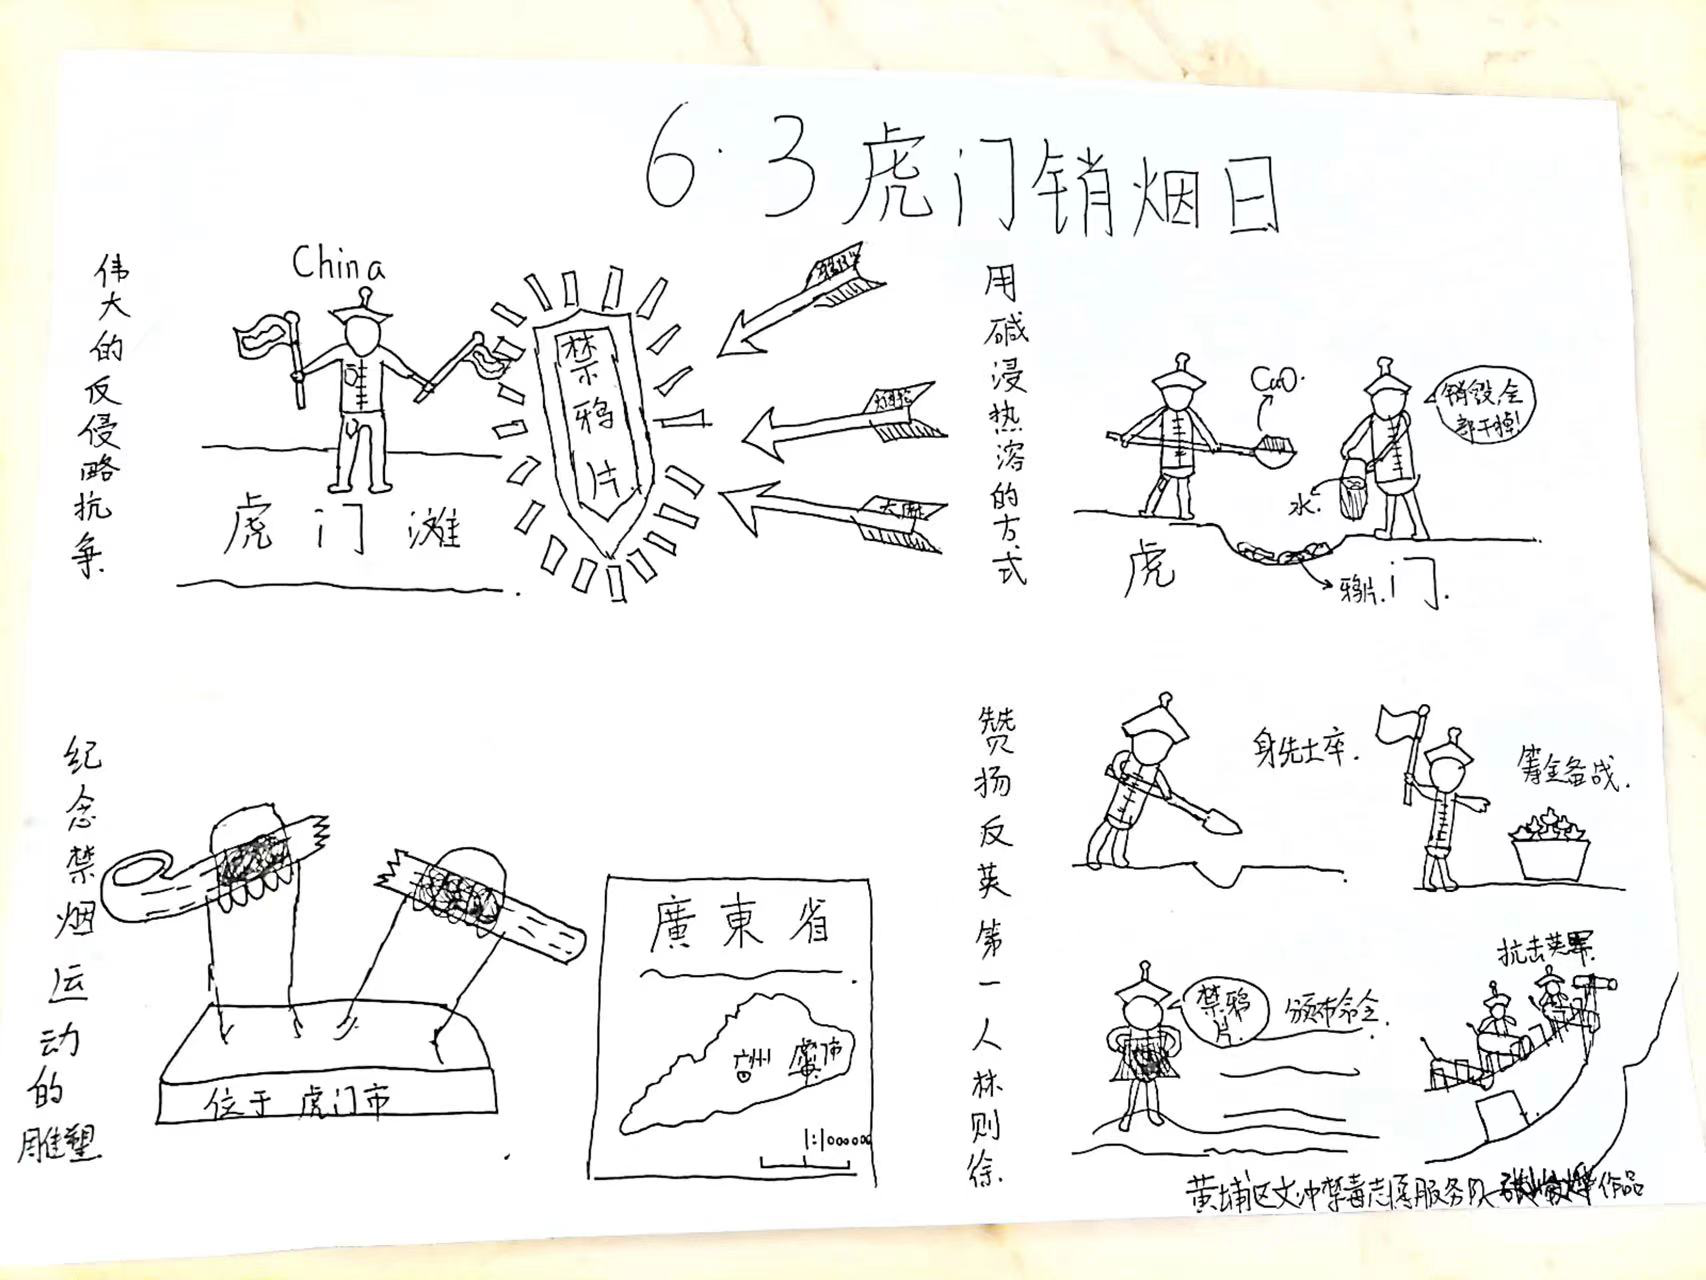 6·3虎门销烟日
伟大的反侵略抗争
China
禁鸦片
虎门滩
用碱浸热溶的方式
CaO.
销毁,全
部干掉!
水.
虎门.
鸦片.
纪念禁烟运动的雕塑
位于虎门市
廣東省
广州
1:1000000
赞扬反英第一人林则徐.
身先士卒.
筹金备战.
禁鸦
片.
颁布命令.
抗击英军.
黄埔区文冲禁毒志愿服务队
作品